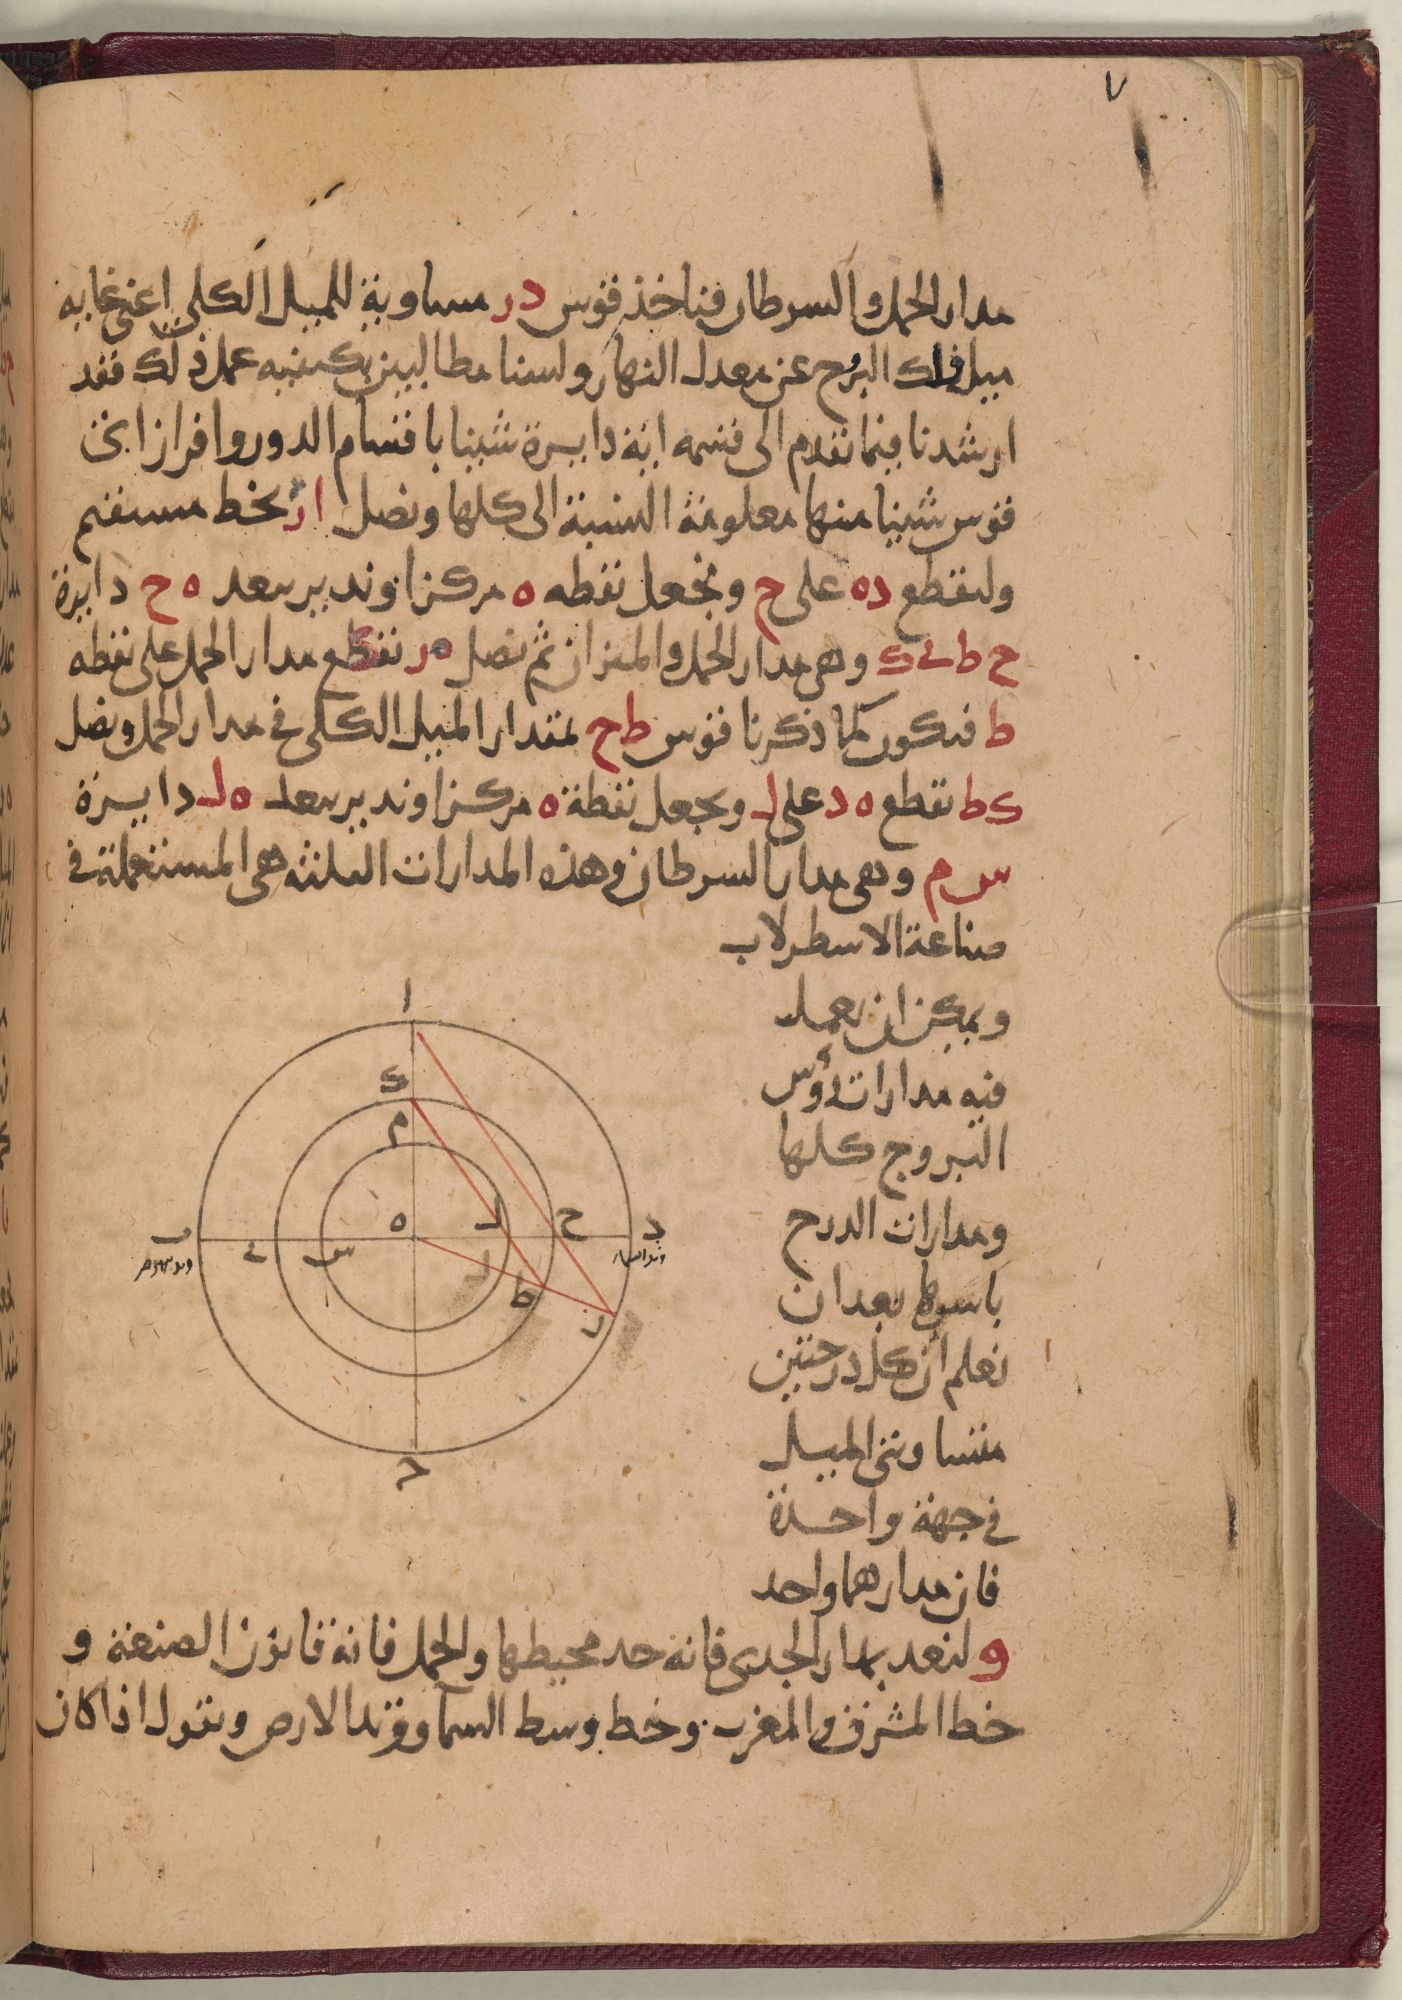 ٧
مدار الحمل والسرطان فناخذ قوس د ر مساوية للميل الكلى اعنى غاية
ميل فلك البروج عن معدل النهار ولسنا مطالبين بكيفية عمل ذلك فقد
ارشدنا فيما تقدم الى قسمة اية دايرة شينا باقسام الدور وافراز اى
قوس شينا منها معلومة النسبة الى كلها ونصل ا ر بخط مستقيم
وليقطع د ه على ح ونجعل نقطه ه مركزا وندير ببعد ه ح دايرة
ح ط ى ك وهى مدار الحمل والميزان ثم نصل ه ر نقطع مدار الحمل على نقطه
ط فيكون كما ذكرنا قوس ط ح بمقدار الميل الكلى فى مدار الحمل ونصل
ك ط نقطع ه د على ل ونجعل نقطة ه مركزا وندير ببعد ه ل دايرة
س م وهى مدار السرطان وهذه المدارات الثلثه هى المستعملة فى
صناعة الاسطرلاب
ويمكن ان يعمل
فيه مدارات رؤس
البروج كلها
ومدارات الدرج
باسرها بعد ان
تعلم ان كل درجتين
متساويتى الميل
فى جهة واحدة
فان مدارهما واحد
ا
ك
م
ه
ل
ح
د
ب
ى
س
ل
ط
ر
ح
ولنعد مدار الجدى فانه حد محيطها والحمل فانه قانون الصنعة و
خط المشرق والمغرب وخط وسط السما ووتد الارض ونقول اذا كان